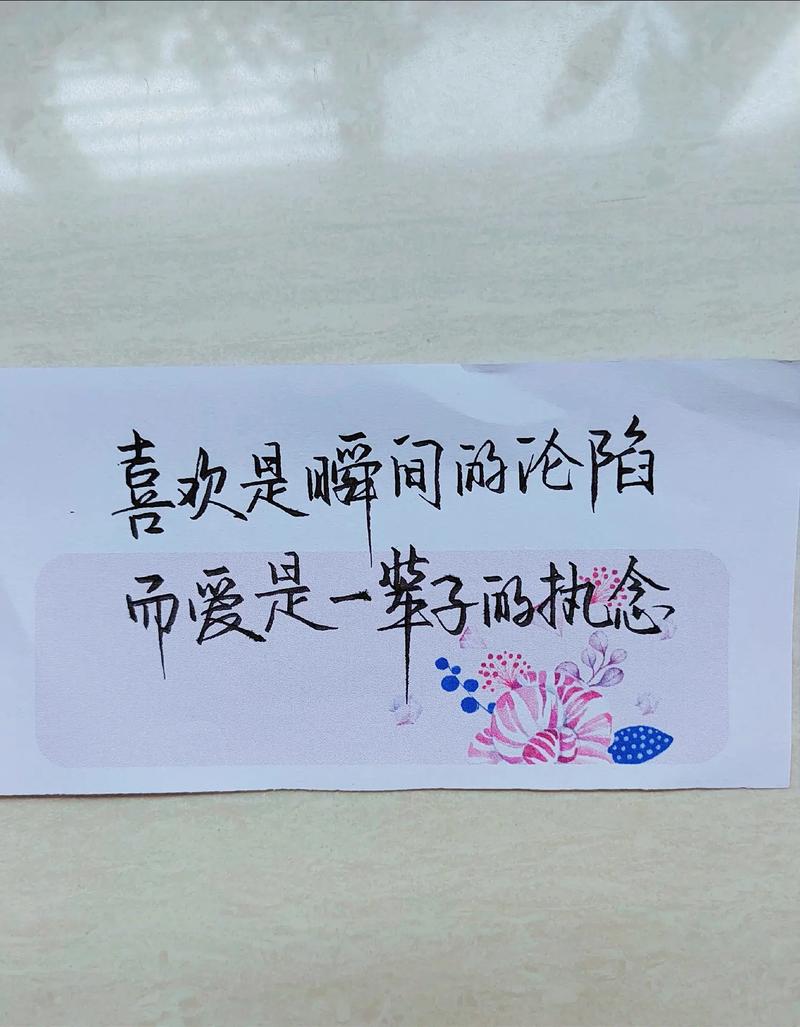 喜欢是瞬间的沦陷
而爱是一辈子的执念